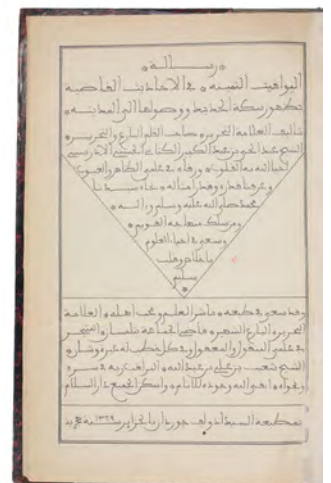 رسالة
المواقيت الثمينة في الاحاديث القاضية
بظهور سكة الحديد ووصولها الى المدينة
تاليف العلامة النحرير صاحب القلم البارع والتحرير
الشيخ عبد الحي بن عبد الكبير الكتاني الحسني الادريسي
احيا الله به القلوب ورقاه في علمي الظاهر والغيوب
وعرفنا قدره وقدر امثاله بجاه سيدنا
محمد صلى الله عليه وسلم واله
ومن سلك منهاجه القويم
وسعى في احياء العلوم
باخلاص وقلب
سليم
وقد سعى في طبعه ناشر العلم ومحب اهله العلامة
النحرير البارع الشهير قاضي الجماعة بتلمسان والمتبحر
في علمي المنقول والمعقول وفي كل خطب له غيرة وشان
الشيخ شعيب بن علي بن عبد الله الله يراقبه في سره
ونجواه ادام الله وجوده للانام واسكن الجميع دار السلام
بمطبعة السيد ادولف جوردان بالجزاير سنة ١٣٢٩ هجرية